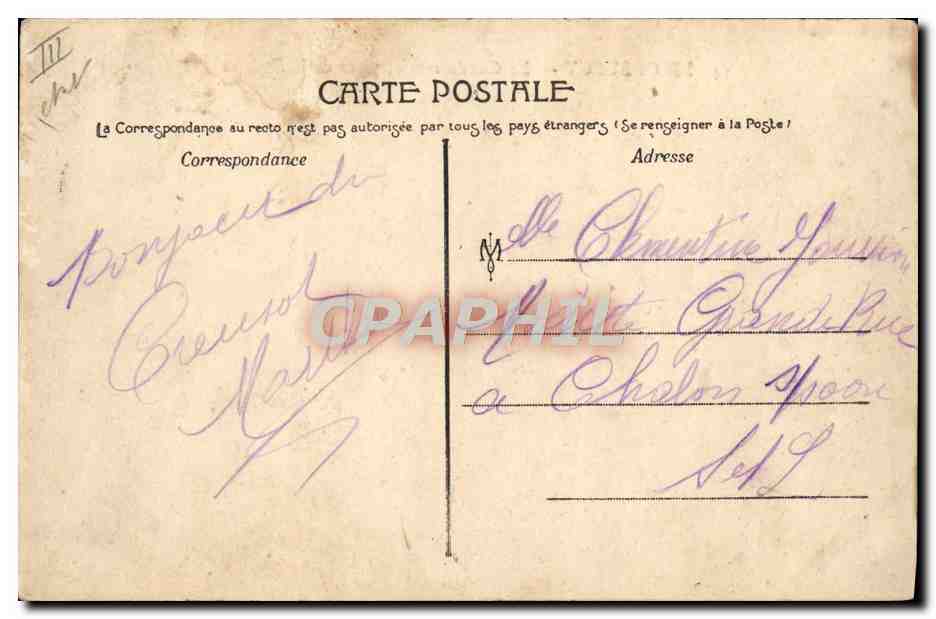 III
CARTE POSTALE
La Correspondance au recto n'est pas autorisée par tous les pays étrangers (Se renseigner à la Poste)
Correspondance
Adresse
Bonjour du
Creusot
M
elle Clementine
Grande Rue
a Chalon s/ Saone
S et L
CPAPHIL